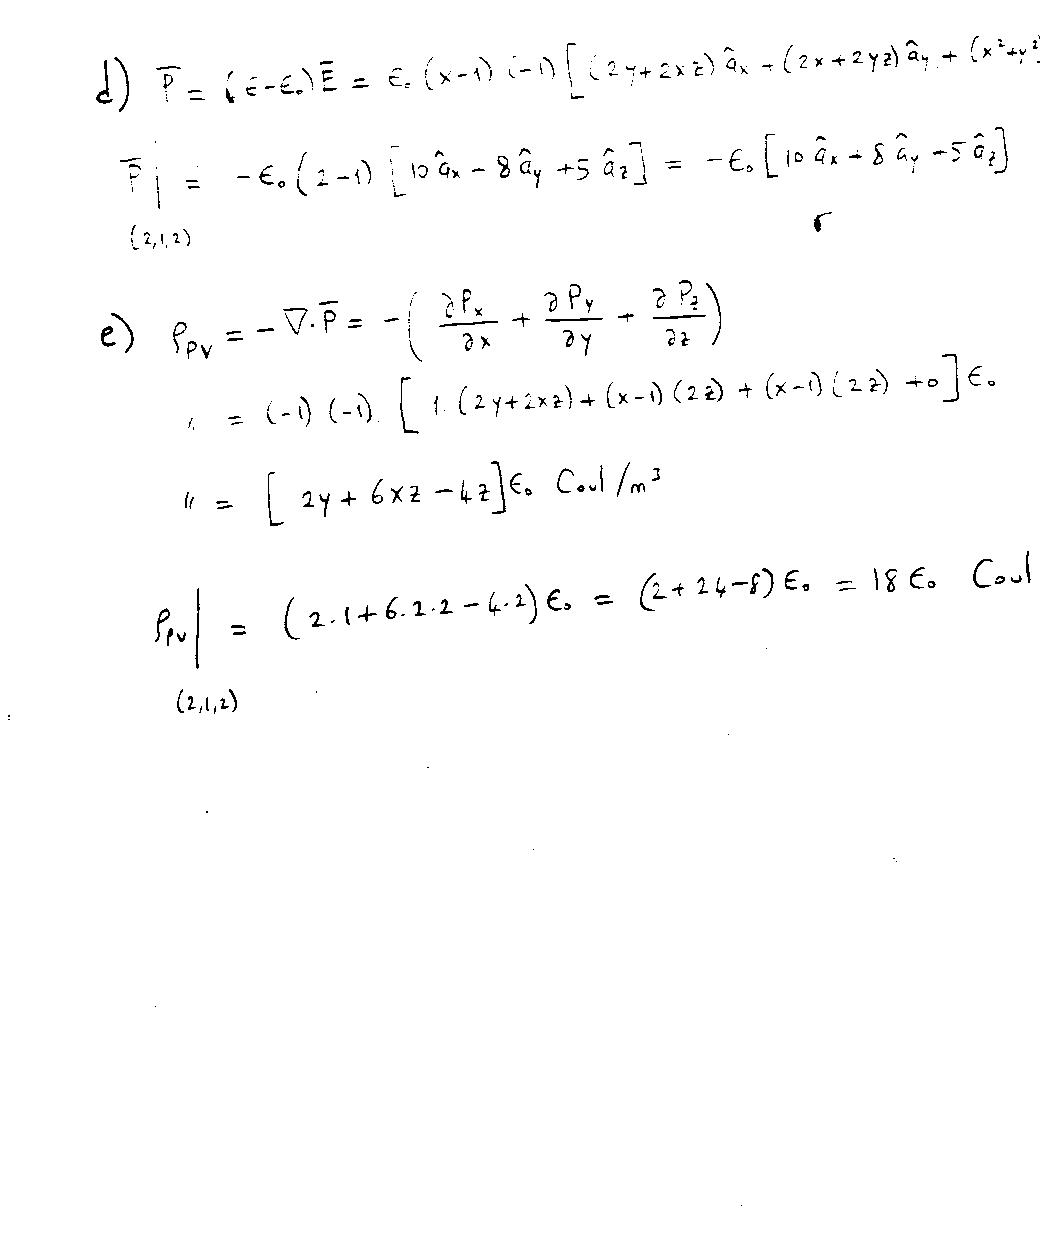 d) P̅ = (ϵ-ϵ₀)E̅ = ϵ₀ (x-1) (-1) [(2y+2xz) âx + (2x+2yz) ây + (x²+y²
P̅| = -ϵ₀(2-1) [10 âx + 8 ây +5 âz] = -ϵ₀ [10 âx + 8 ây +5 âz]
(2,1,2)
e) ρpv = - ∇·P̅ = -( ∂Px/∂x + ∂Py/∂y + ∂Pz/∂z )
" = (-1) (-1) [ 1. (2y+2xz) + (x-1) (2z) + (x-1) (2z) +0 ] ϵ₀
" = [ 2y + 6xz - 4z ] ϵ₀ Coul/m³
ρpv| = (2.1+6.2.2-4.2) ϵ₀ = (2+24-8) ϵ₀ = 18 ϵ₀ Coul
(2,1,2)